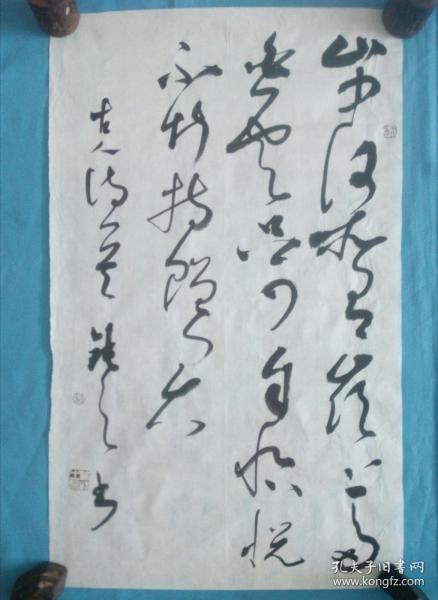 山中何所有嶺上多
白云只可自怡悦
不堪持贈君
古人诗一首 之书
孔夫子旧书网
www.kongfz.com